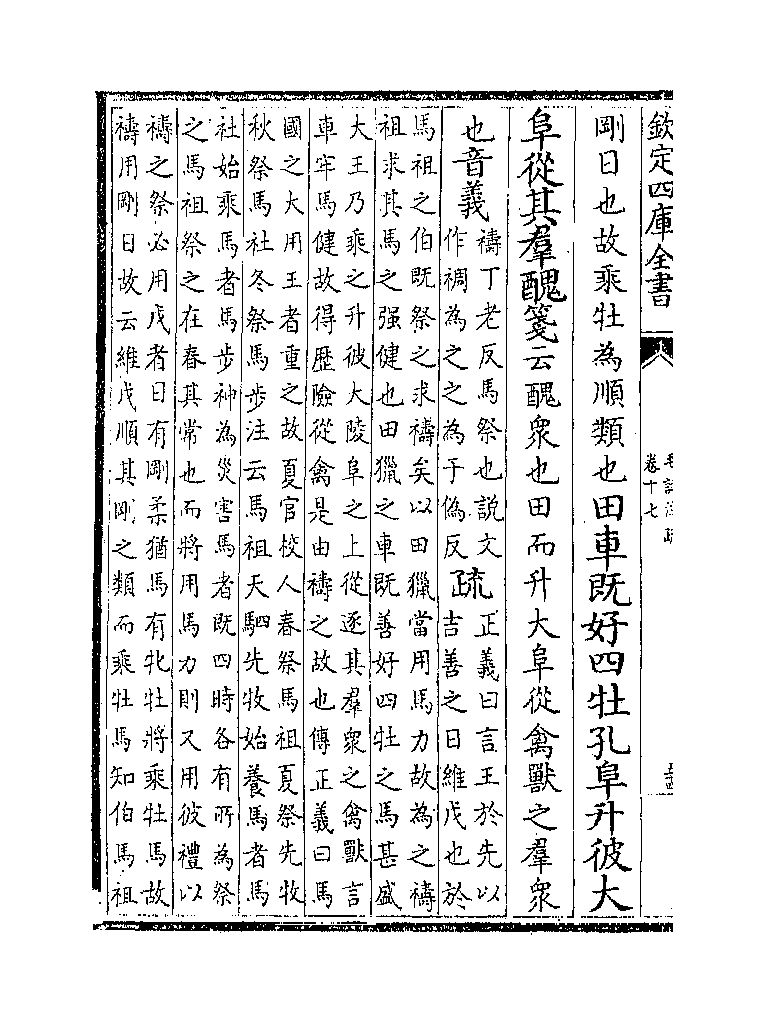 欽定四庫全書
卷十七
剛日也故乘牡為順類也田車既好四牡孔阜升彼大
阜從其羣醜箋云醜衆也田而升大阜從禽獸之羣衆
也音義
禱丁老反馬祭也說文
作禂為之之為于偽反
疏
正義曰言王於先以
吉善之日維戊也於
馬祖之伯既祭之求禱矣以田獵當用馬力故為之禱
祖求其馬之强健也田獵之車既善好四牡之馬甚盛
大王乃乘之升彼大陵阜之上從逐其羣衆之禽獸言
車牢馬健故得歴險從禽是由禱之故也傳正義曰馬
國之大用王者重之故夏官校人春祭馬祖夏祭先牧
秋祭馬社冬祭馬步注云馬祖天駟先牧始養馬者馬
社始乘馬者馬步神為災害馬者既四時各有所為祭
之馬祖祭之在春其常也而將用馬力則又用彼禮以
禱之祭必用戊者日有剛柔猶馬有牝牡將乘牡馬故
禱用剛日故云維戊順其剛之類而乘牡馬知伯馬祖